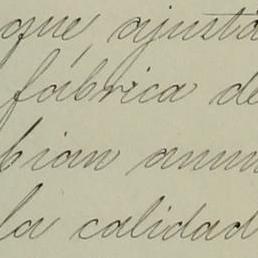 que, ajustá
fábrica de
bian anun
la calidad